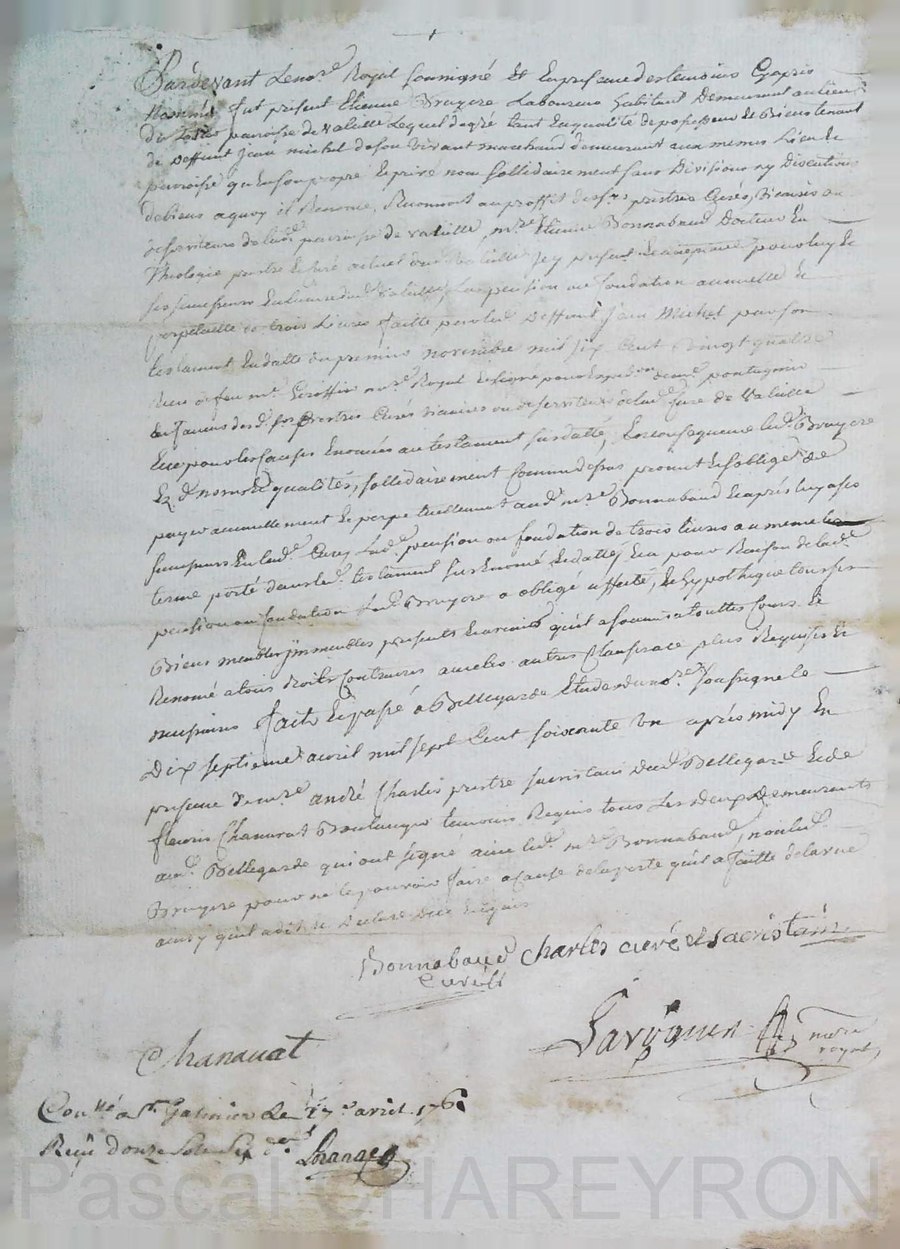 Pardevant Lenore Royal soussigné Et En presence des temoins Cyapres
Nommés fut présent Etienne Bruyere Laboureur habitant Demeurant au lieu
du paroisse de valeille Lequel de gré tant En qualité de possesseur Et Bien tenant
de Deffunt Jean michel de son vivant marchand demeurant aux memes Lieu Et
paroisse qu'En son propre Et privé nom sollidairement sans Divisions ny Discutions
de biens a quoy il Renonce, Reconnoit au proffit des srs prestres Curés, Vicaires ou
desserviteurs de lad. paroisse de valeille mre Etienne Bonnabaud Docteur En
Theologie prestre Et curé actuel dud. Valeille jcy présent Et acceptant pour luy Et
ses successeurs En la cure dud. Valeille, La pension ou fondation annuelle Et
perpetuelle de trois Livres faitte par led. Deffunt Jean Michel par son
testament En datte du premier novembre mil six Cent Vingt quatre
Receu de feu me nore Royal
En faveur desd. srs Prestres Curés vicaires ou desserviteurs de lad. Cure de Valeille
Et ce pour les causes Enoncées au testament susdatté, En consequence led. Bruyere
Ez d. noms Et qualités, sollidairement Comme dessus promet Et s'oblige de
payer annuellement Et perpetuellement aud. mre Bonnabaud Et après luy a ses
successeurs En lad. Cure, Lad. pension ou fondation de trois livres au meme
terme porté dans led. testament sus Enoncé Et datté, Et a pour Raison de lad.
pension ou fondation led. Bruyere a obligé affecté, Et hypothequé tous ses
Biens meubles jmmeubles presents Et avenirs qu'il a soumis a touttes Cours Et
Renoncé a tous droits Contraires avec les autres Clauses plus Requises Et
necessaires fait Et passé a Bellegarde Etude du nore soussigné le
Dix septieme avril mil sept Cent soixante Un après midy En
presence de mre andré Charles prestre sacristain dud. Bellegarde Et de
fleury Chanavat Boulanger temoins Requis tous Les deux Demeurants
aud. Bellegarde qui ont signé avec led. mre Bonnabaud, non led.
Bruyere pour ne le pouvoir faire a Cause de la perte qu'il a faitte de la vue
ainsy qu'il a dit Et Declaré Enquis
Bonnabaud Charles curé et sacristain
Curé
Chanavat
nore
royal
Con.llé a St. Galmier Le 17e avril 1761
Reçu douze sols six ders